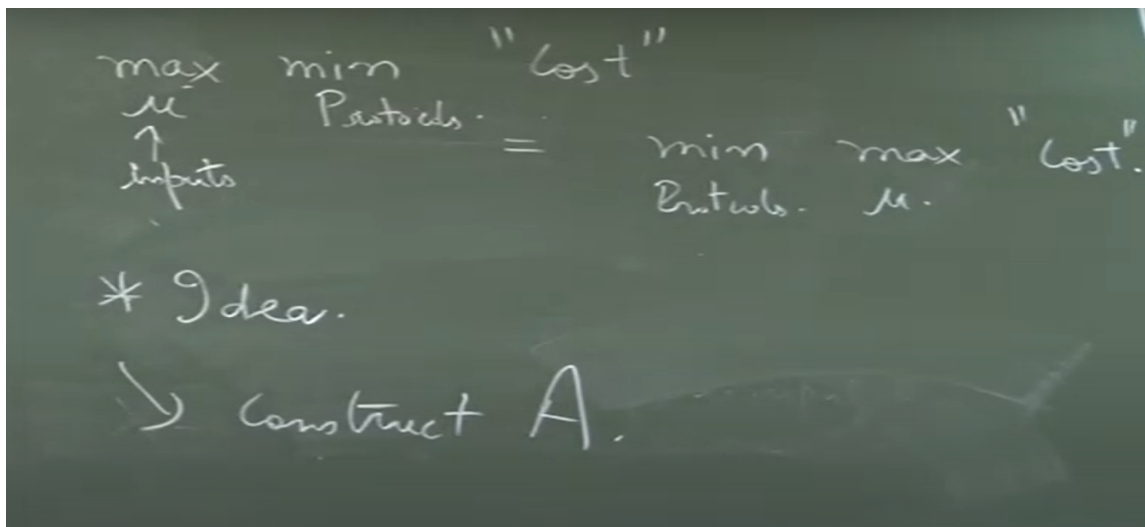 max min "Cost"
μ Protocols.
= min max "Cost".
↑
inputs Protocols. μ.
* Idea.
↘ Construct A.